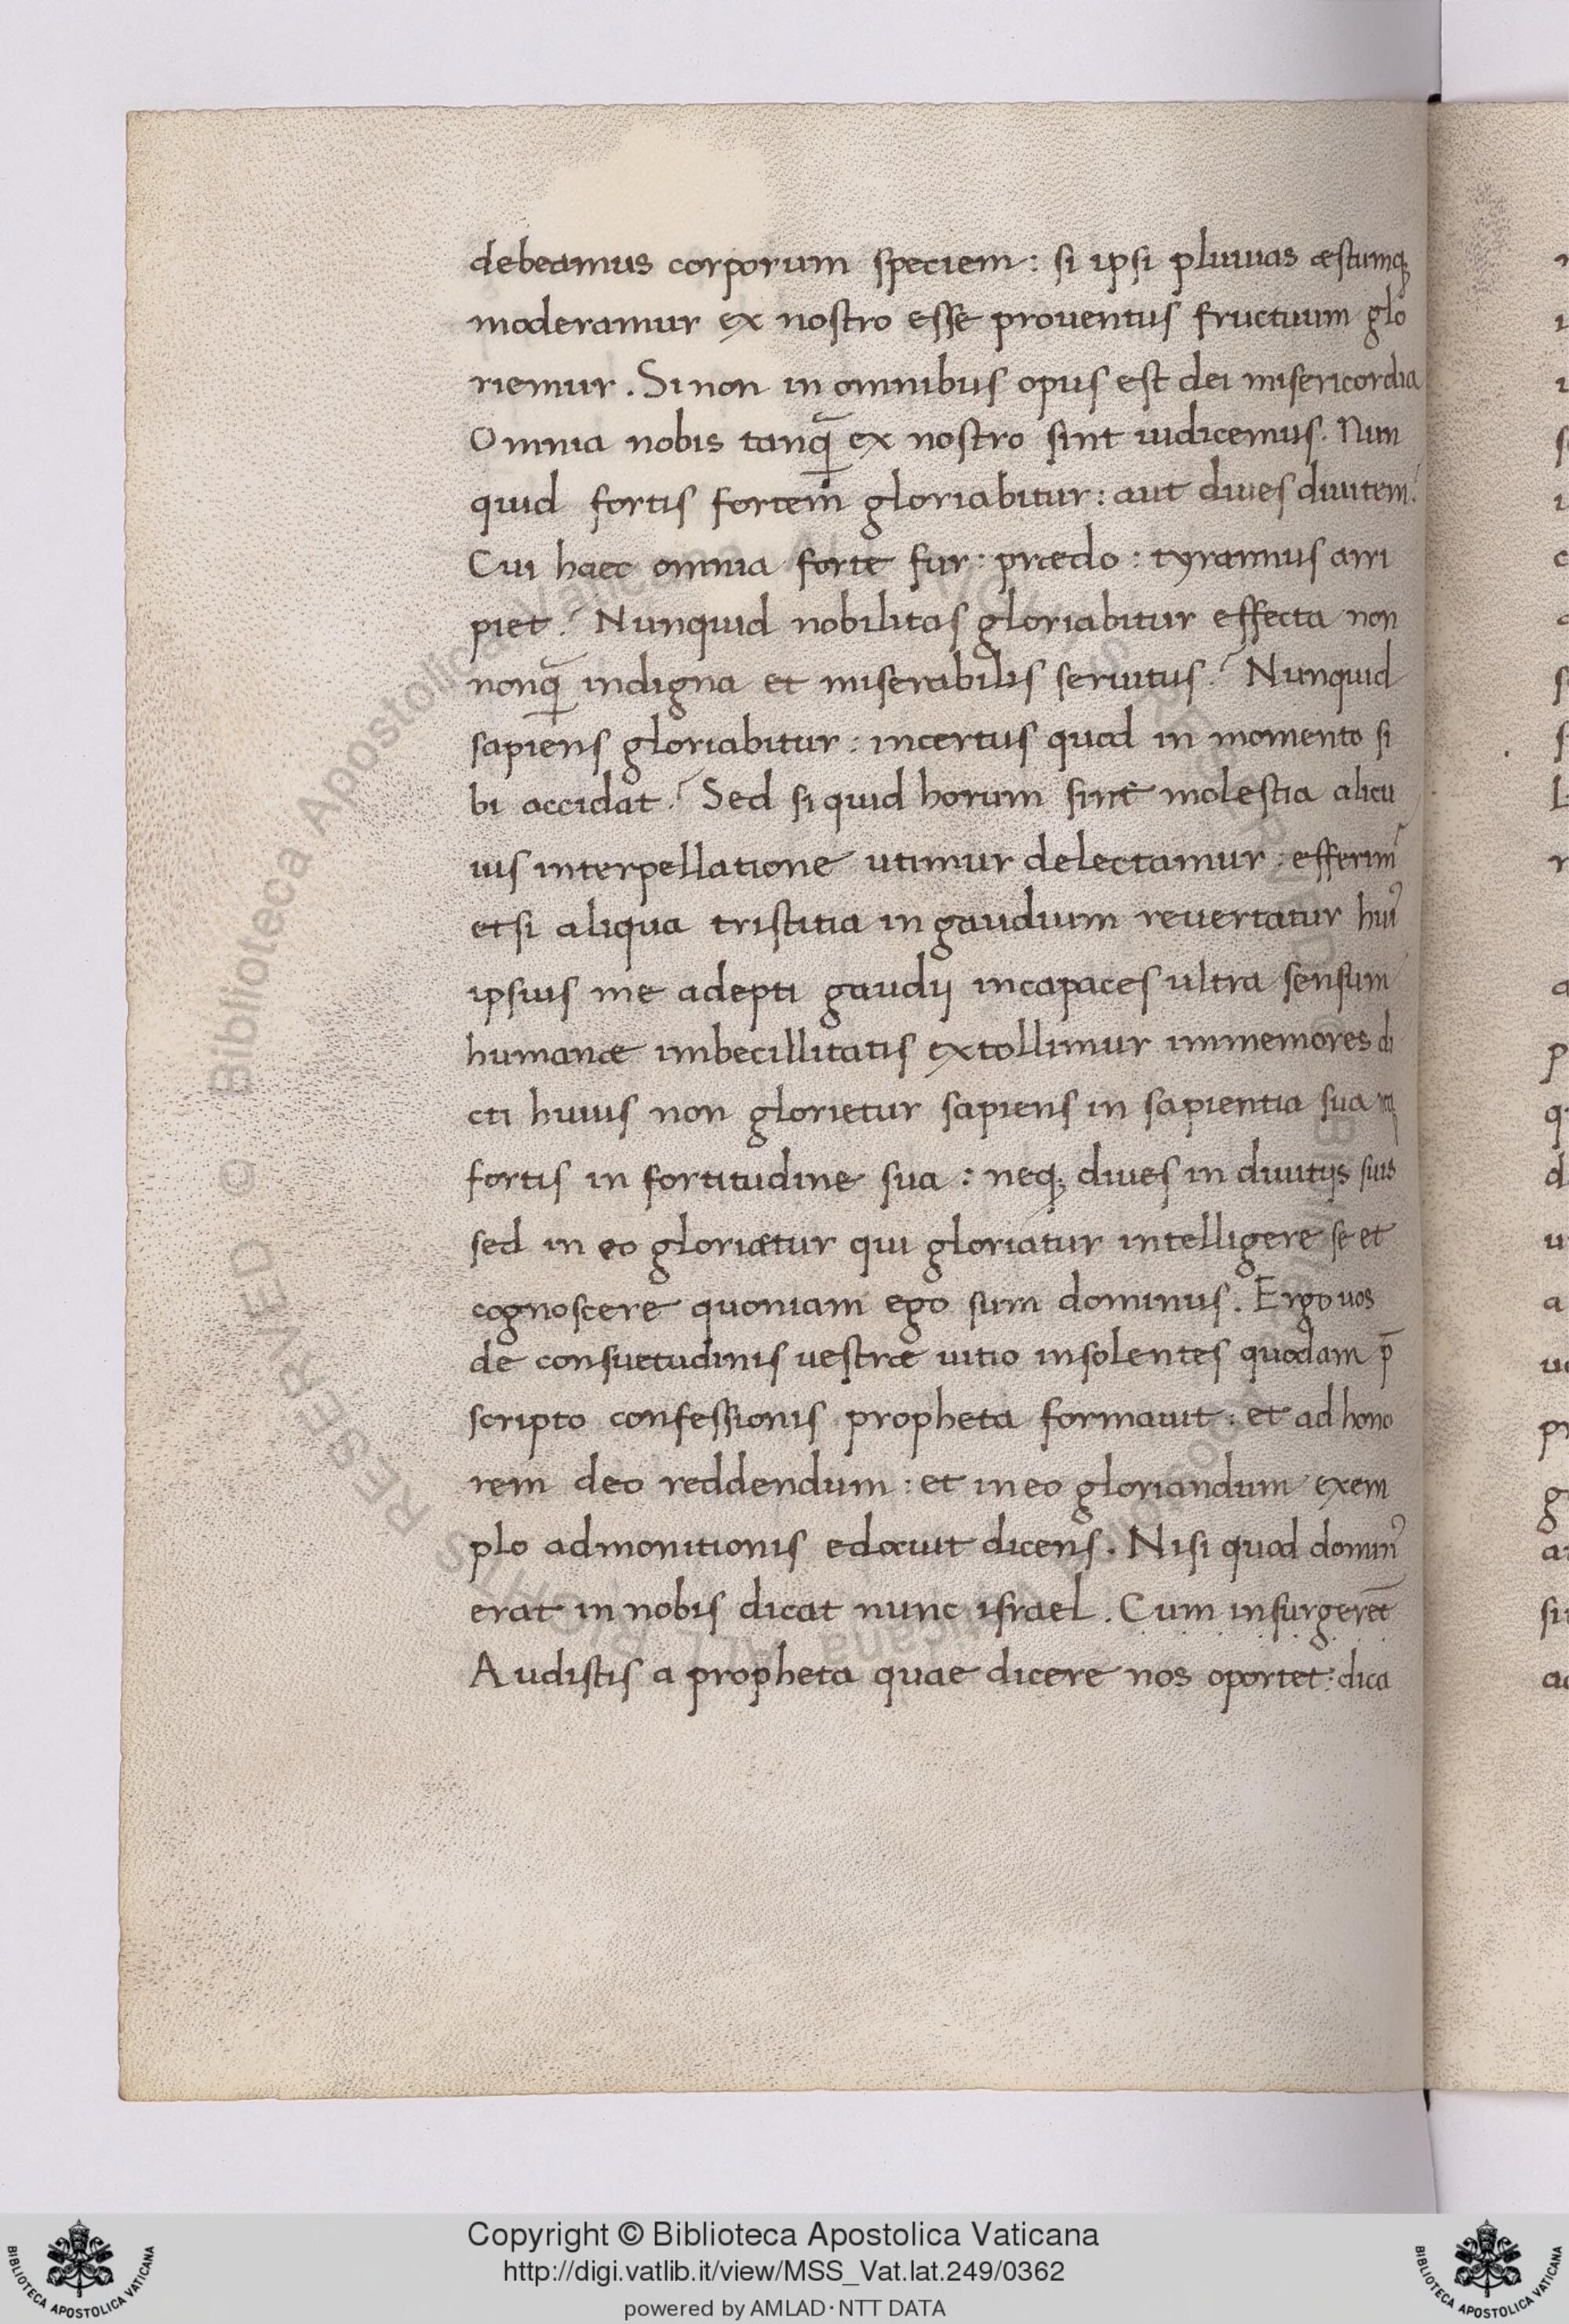 debeamus corporum speciem: si ipsi pluuias æstumq;
moderamur ex nostro esse prouentus fructuum glo
riemur. Si non in omnibus opus est dei misericordia
Omnia nobis tanq̄ ex nostro sint iudicemus. Nun
quid fortis fortem gloriabitur: aut diues diuitem?
Cui haec omnia forte fur: prædo: tyrannus arri
piet? Nunquid nobilitas gloriabitur effecta non
nonq̄ indigna et miserabilis seruitus? Nunquid
sapiens gloriabitur: incertus quod in momento si
bi accidat? Sed si quid horum sint molestia alicu
ius interpellatione utimur delectamur: efferim᷑
et si aliqua tristitia in gaudium reuertatur hui᾽
ipsius me adepti gaudij incapaces ultra sensum
humanæ imbecillitatis extollimur immemores di
cti huius non glorietur sapiens in sapientia sua
fortis in fortitudine sua: neq; diues in diuitijs suis
sed in eo gloriætur qui gloriatur intelligere se et
cognoscere quoniam ego sum dominus. Ergo uos
de consuetudinis uestræ uitio insolentes quodam p̄
scripto confessionis propheta formauit: et ad hono
rem deo reddendum: et in eo gloriandum exem
plo admonitionis edocuit dicens. Nisi quod domin᾽
erat in nobis dicat nunc israel. Cum insurgeret̄
Audistis a propheta quae dicere nos oportet: dica
Copyright © Biblioteca Apostolica Vaticana
http://digi.vatlib.it/view/MSS_Vat.lat.249/0362
powered by AMLAD·NTT DATA
BIBLIOTECA APOSTOLICA VATICANA
BIBLIOTECA APOSTOLICA VATICANA